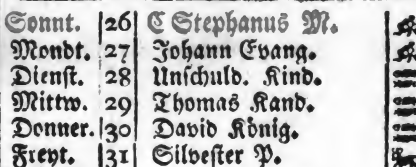 Sonnt. 26 C Stephanus M.
Mondt. 27 Johann Evang.
Dienst. 28 Unschuld. Kind.
Mittw. 29 Thomas Kand.
Donner. 30 David König.
Freyt. 31 Silvester P.